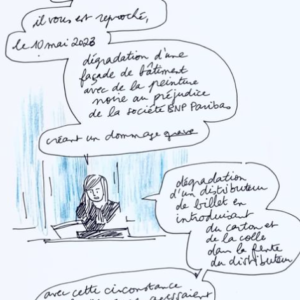 il vous est reproché,
le 10 mai 2023
dégradation d'une
façade de bâtiment
avec de la peinture
noire au préjudice
de la société BNP Paribas
créant un dommage grave
dégradation
d'un distributeur
de billet en
introduisant
du carton et
de la colle
dans la fente
du distributeur
avec cette circonstance